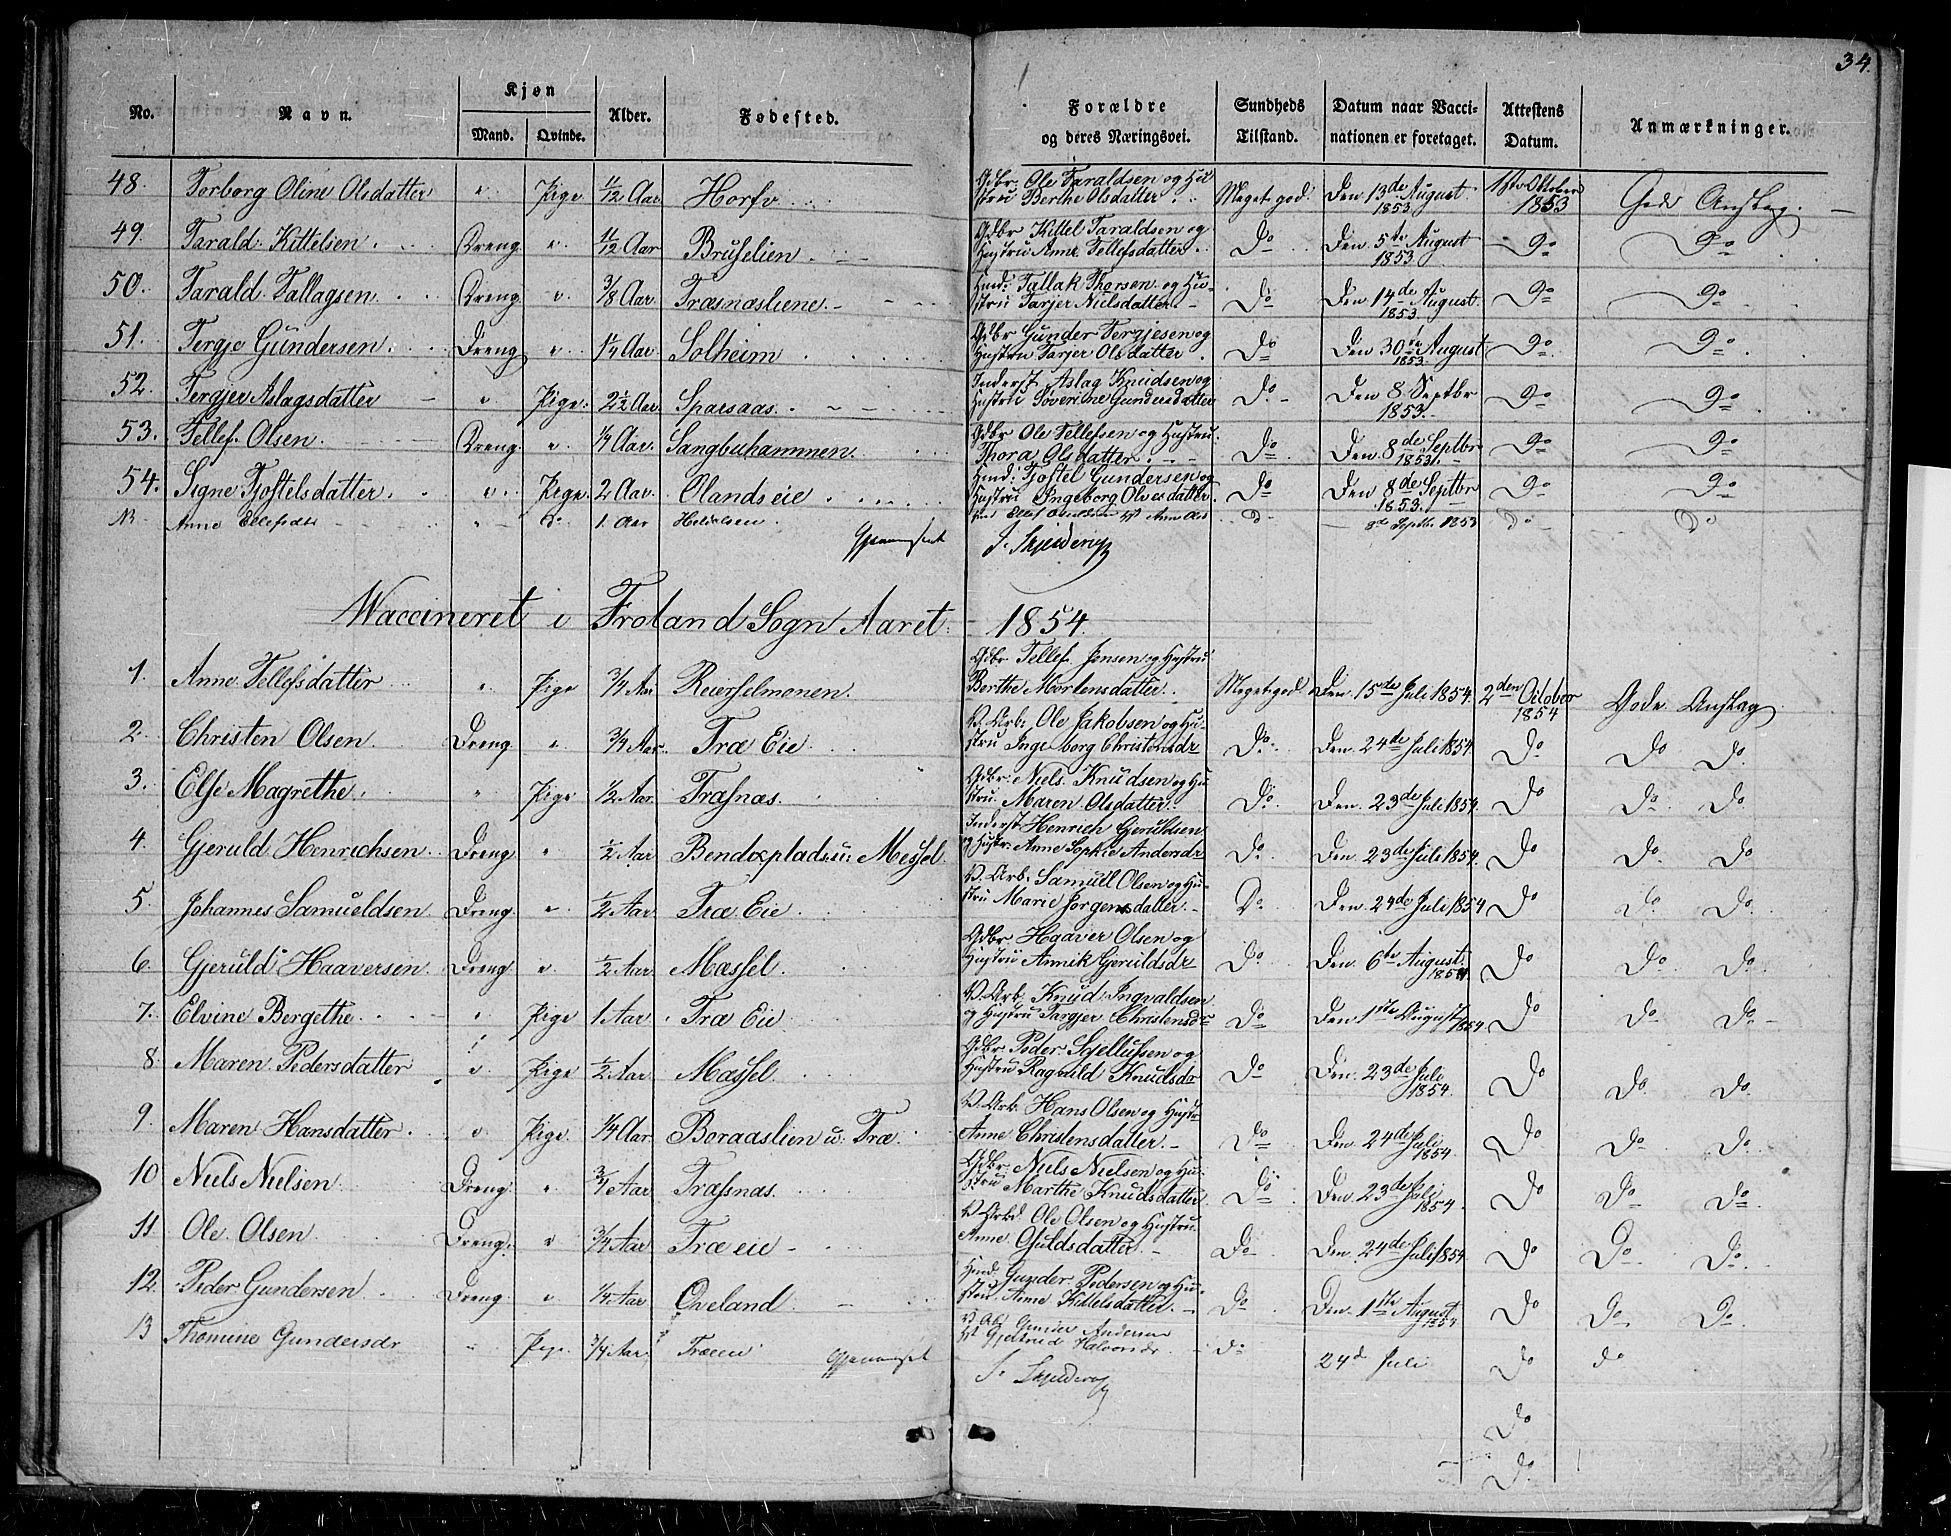 34.
No. Navn. Kjøn Mand. Qvinde. Alder. Fødested. Forældre og deres Næringsvei. Sundheds Tilstand. Datum naar Vaccinationen er foretaget. Attestens Datum. Anmærkninger.
48. Torborg Oline Olsdatter " Pige 11/12 Aar Horfv Gdbr. Ole Taraldsen og Hu
stru Berthe Olsdatter. Meget god. Den 13de August 1853 1ste Oktober 1853 Gode Anslag.
49. Tarald Kittelsen. Dreng " 11/12 Aar Bruselien Gdbr Kittel Taraldsen og
Hustru Anne Tellefsdatter. Do Den 5te August 1853 Do Do
50. Tarald Tallagsen. Dreng " 3/8 Aar Træsnæsliene Hmd: Tallak Thorsen og Hu-
stru Tarjer Nielsdatter Do Den 14de August 1853 Do Do
51. Tergje Gundersen. Dreng " 1/4 Aar Solheim Gdbr Gunder Tergjesen og
Hustru Tarjer Olsdatter Do Den 30te August 1853. Do Do
52. Tergjer Aslagsdatter " Pige. 2 1/2 Aar Sparsaas. Inderst Aslag Knudsen og
Hustru Søverine Gundersdatter Do Den 8 Septbr 1853. Do Do
53. Tellef. Olsen. Dreng. " 1/4 Aar. Sangbuhammen Gdbr Ole Tellefsen og Hustru
Thora Olsdatter Do Den 8de Septbr 1853. Do Do
54. Signe Tjostelsdatter. " Pige. 2 Aar. Olands eie Hmd: Tjostel Gundersen og
Hustru Ingeborg Olvesdatter. Do Den 8de Septbr 1853. Do Do
Anne Ellefsdtr " Do 1. Aar Do 8de Septbr. 1853 Do Do
Gjennemseet S. Skjelderup
Waccineret i Froland Sogn Aaret 1854.
1. Anne Tellefsdatter " Pige 3/4 Aar Reierselmonen. Gdbr. Tellef. Jensen og Hustru
Berthe Mortensdatter. Meget god. Den 15de Juli 1854. 2den October 1854 Gode Anslag
2. Christen Olsen. Dreng " 3/4 Aar. Træ Eie V. Arb: Ole Jakobsen og Hu-
stru Ingeborg Christensdr Do. Den. 24de Juli 1854 Do Do Do
3. Else Magrethe. " Pige 1/2 Aar. Træsnæs. Gdbr: Niels. Knudsen og Hu
stru. Maren Olsdatter. Do. Den. 23de Juli 1854. Do Do Do
4. Gjeruld Henrichsen. Dreng " 1/2 Aar Bendixplads u: Messel Inderst Henrich Gjeruldsen
og Hustr: Anne Sophie Andersdr Do. Den. 23de Juli 1854. Do Do. Do
5. Johannes Samueldsen. Dreng " 1/2 Aar. Træ Eie V. Arb. Samuel Olsen og Hu-
stru Marie Jørgensdatter. Do Den. 24de Juli 1854 Do Do. Do.
6. Gjeruld Haaversen. Dreng " 1/2 Aar Mæssel. Gdbr Haaver Olsen og
Hustru Annik Gjeruldsdr Do Den. 6te August 1854 Do Do Do.
7. Elvine Bergethe. " Pige 1 Aar Træ Eie V. Arb. Knud Ingvaldsen
og Hustru Targjer Christensdr Do Den 1ste August 1854. Do Do Do
8. Maren Pedersdatter " Pige 1/2 Aar Mæssel. Gdbr Peder Schellufsen og
Hustru Ragnild Knudsdr Do Den. 23de Juli 1854. Do Do. Do.
9. Maren Hansdatter. " Pige. 1/4 Aar. Boraaslien u. Træ. V. Arb. Hans Olsen og Hustr
Anne Christensdatter. Do Den. 24de Juli 1854. Do Do Do.
10 Niels Nielsen. Dreng. " 3/4 Aar Træsnæs. Gdbr. Niels Nielsen og Hu-
stru Marthe Knudsdatter Do Den. 23de Juli 1854. Do Do Do
11. Ole Olsen. Dreng. " 3/4 Aar Træ eie Ole Olsen og Hustru
Anne Do Den. 24de Juli 1854 Do Do Do.
12. Peder Gundersen. Dreng " 1/4 Aar Oveland. Hmd. Gunder Pedersen og Hu-
stru Anne Kittelsdatter. Do Den. 1ste August 1854 Do Do. Do
13 Thomine Gundersdr " Pige 3/4 Aar. Træeie Gunder Andersen
Gjertrud Halvorsdr. do 24d Juli Do do
Gjennemseet S. Skjelderup
Do
Do